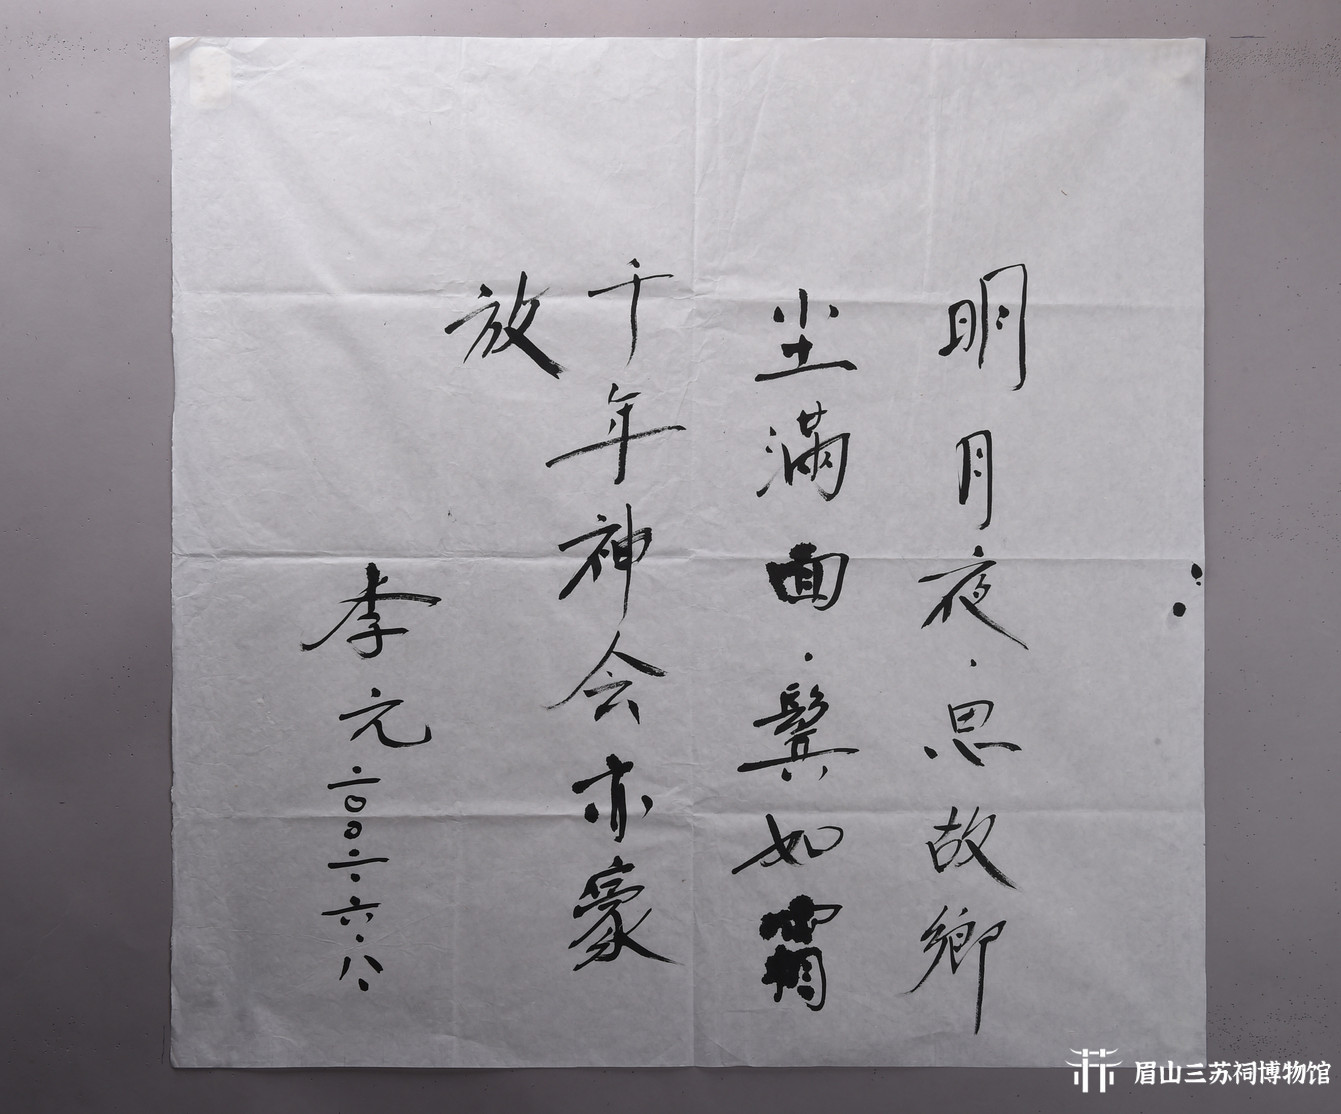 明月夜·思故鄉
尘滿面·鬓如霜
千年神会亦豪
放
李元
二〇〇二·六·八
眉山三苏祠博物馆